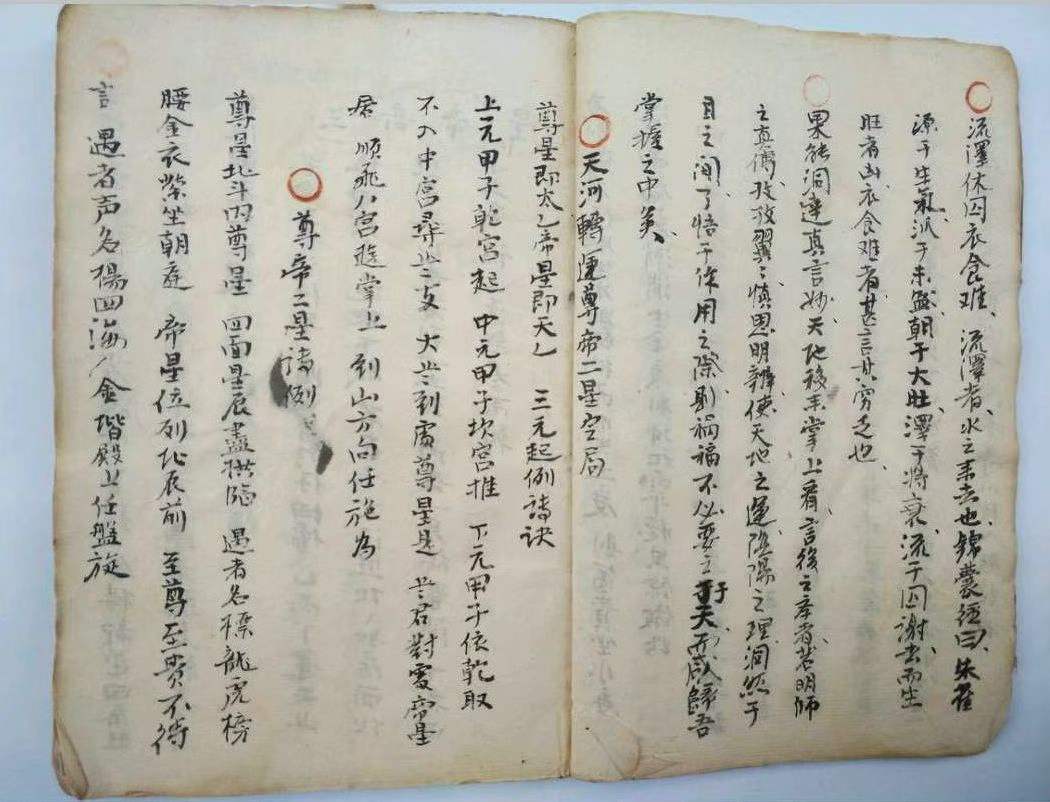 流澤休囚衣食难、流澤者、水之来去也、錦囊經曰、朱雀
源于生氣、派于未盛、朝于大旺、澤于将衰、流于囚謝、去而生
旺者也、衣食难者、甚言其穷乏也、
果能洞達真言妙、天地移来掌上看、言後之孝者、若明师
之真傳、孜孜翼〻、慎思明辨、使天地之運、陰陽之理、洞然于
目之间、了悟于作用之際、則禍福不必要之于天、而咸歸吾
掌握之中矣、
天河轉運尊帝二星空局
尊星即太乙帝星即天乙 三元起例詩诀
上元甲子乾宫起 中元甲子坎宫推 下元甲子依乾取
不入中宫尋 太岁到處尊星是 岁君對處帝星
居 順飛八宫遊掌上 到山方向任施为
尊帝二星詩例
尊星北斗内尊星 四面星辰盡拱臨 遇者名標龍虎榜
腰金衣紫坐朝庭 帝星位列北辰前 至尊至贵不待
言 遇者声名揚四海 金堦殿上任盤旋